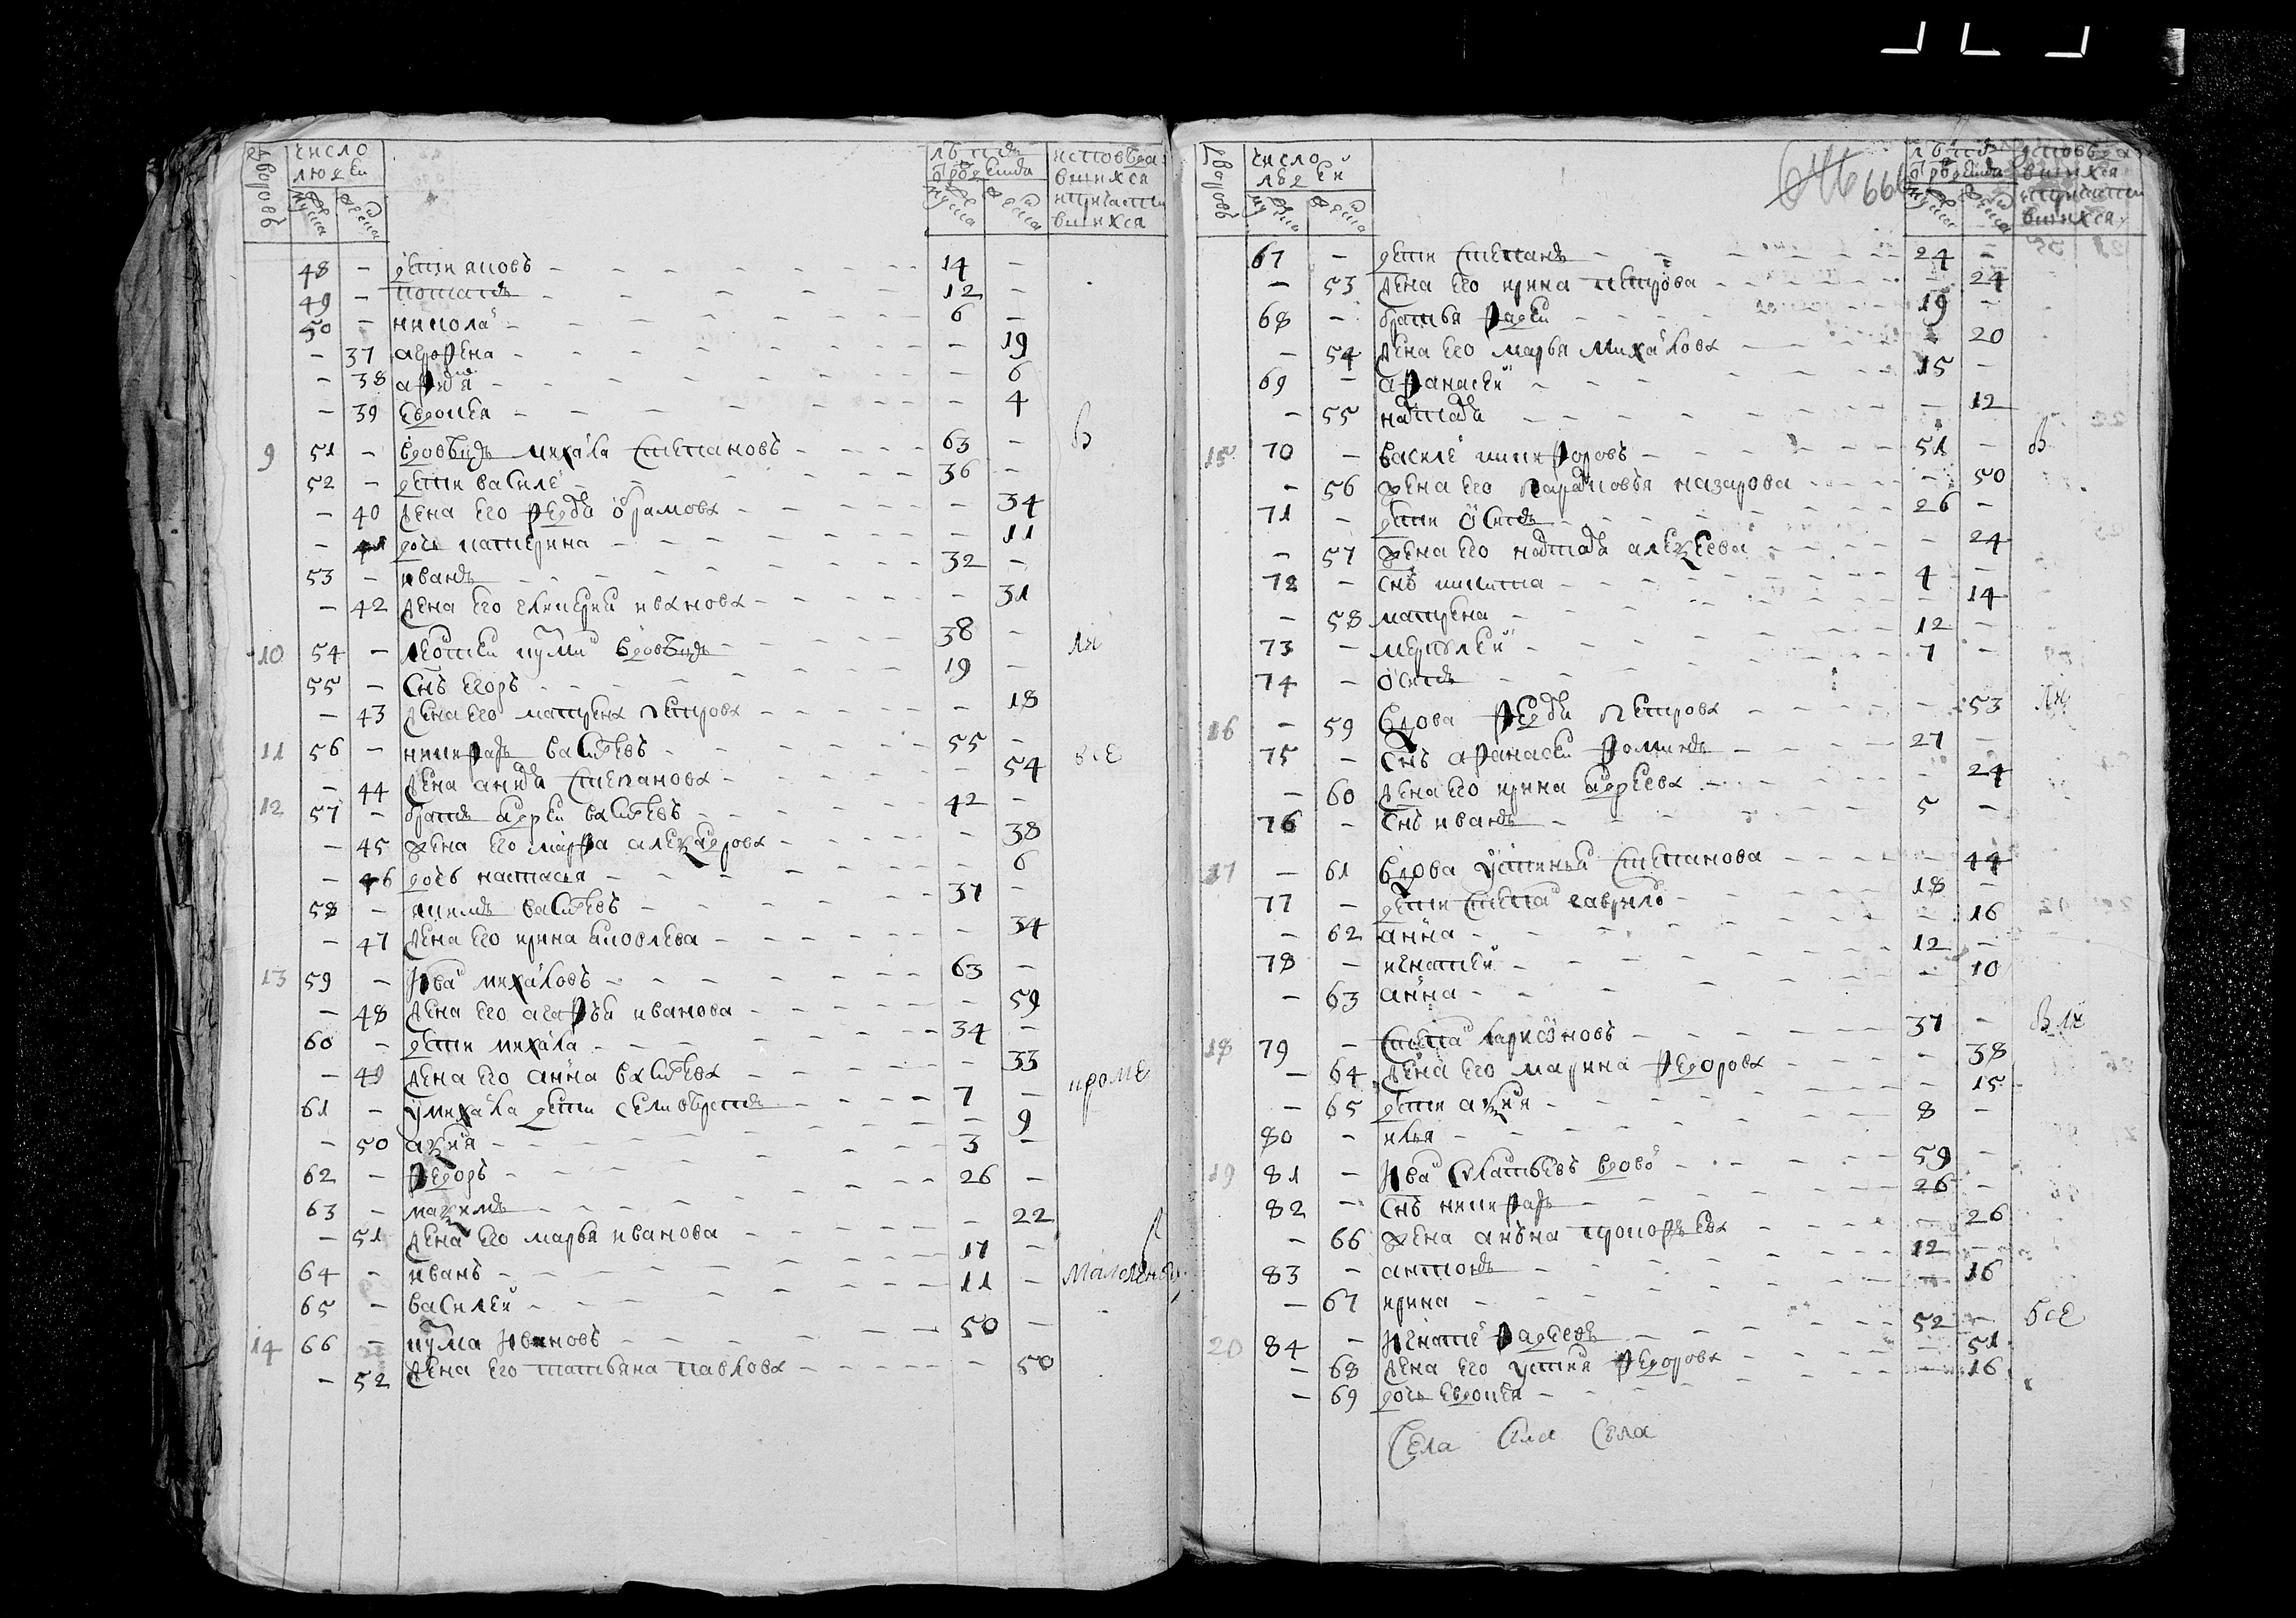 дворовъ число людей мужеска женска лѣта от рождения мужеска женска исповедавшихся и причастившихся
48 - дети яковъ - 14 -
49 - потапъ - 12 -
50 - никола - 6 -
- 37 агрофена - - 19
- 38 - - 6
- 39 евдокея - - 4
9 51 - вдовецъ михаила степановъ - 63 - В
52 - дети василе - 36 -
- 40 жена его федося абрамова - - 34
- 41 дочь катерина - - 11
53 - иванъ - 32 -
- 42 жена его гликерия иванова - - 31
10 54 - кузма вдовецъ - 38 -
55 - снъ егоръ - 19 -
- 43 жена его матрена петрова - - 18
11 56 - никифоръ василевъ - 55 - все
- 44 жена анна степанова - - 54
12 57 - братъ андрей василевъ - 42 -
- 45 жена его марфа александрова - - 38
- 46 дочь настасья - - 6
58 - якимъ василевъ - 37 -
- 47 жена его ирина яковлева - - 34
13 59 - Ива михаиловъ - 63 -
- 48 жена его агафья иванова - - 59
60 - дети михаила - 34 -
- 49 жена его анна василева - - 33
61 - у михаила дети селиверстъ - 7 - кроме
- 50 - - 9
62 - федоръ - 3 -
63 - максимъ - 26 -
- 51 жена его марья иванова - - 22
64 - иванъ - 17 -
65 - василей - 11 - маленки
14 66 - кузма Ивановъ - 50 -
- 52 жена его татьяна павлова - - 50
666
дворовъ число людей мужеска женска лѣта от рождения мужеска женска исповедавшихся и причастившихся
67 - дети степанъ - 24 -
- 53 жена его ирина петрова - - 24
68 - братья фадей - 19 -
- 54 жена его марья михаилова - - 20
69 - афанасей - 15 -
- 55 наталья - - 12
15 70 - василе никифоровъ - 51 - В
- 56 жена его парасковья назарова - - 50
71 - дети осипъ - 26 -
- 57 жена его наталья алексеева - - 24
72 - снъ никита - 4 -
- 58 матрена - - 14
73 - меркулей - 12 -
74 - осипъ - 7 -
16 - 59 вдова федося петрова - - 53
75 - снъ афанасей фоминъ - 27 -
- 60 жена его ирина андреева - - 24
76 - снъ иванъ - 5 -
17 - 61 вдова устинья степанова - - 44
77 - дети гаврило - 18 -
- 62 анна - - 16
78 - игнатей - 12 -
- 63 анна - - 10
18 79 - ларионовъ - 37 -
- 64 жена его марина федорова - - 38
- 65 дети - - 15
80 - илья - 8 -
19 81 - Ива вдовой - 59 -
82 - снъ никифоръ - 26 -
- 66 жена анна прокофьева - - 26
83 - антонъ - 12 -
- 67 ирина - - 16
20 84 - Игнате фадеевъ - 52 - все
- 68 жена его устиния федорова - - 51
- 69 дочь евдокея - - 16
Села Села Села